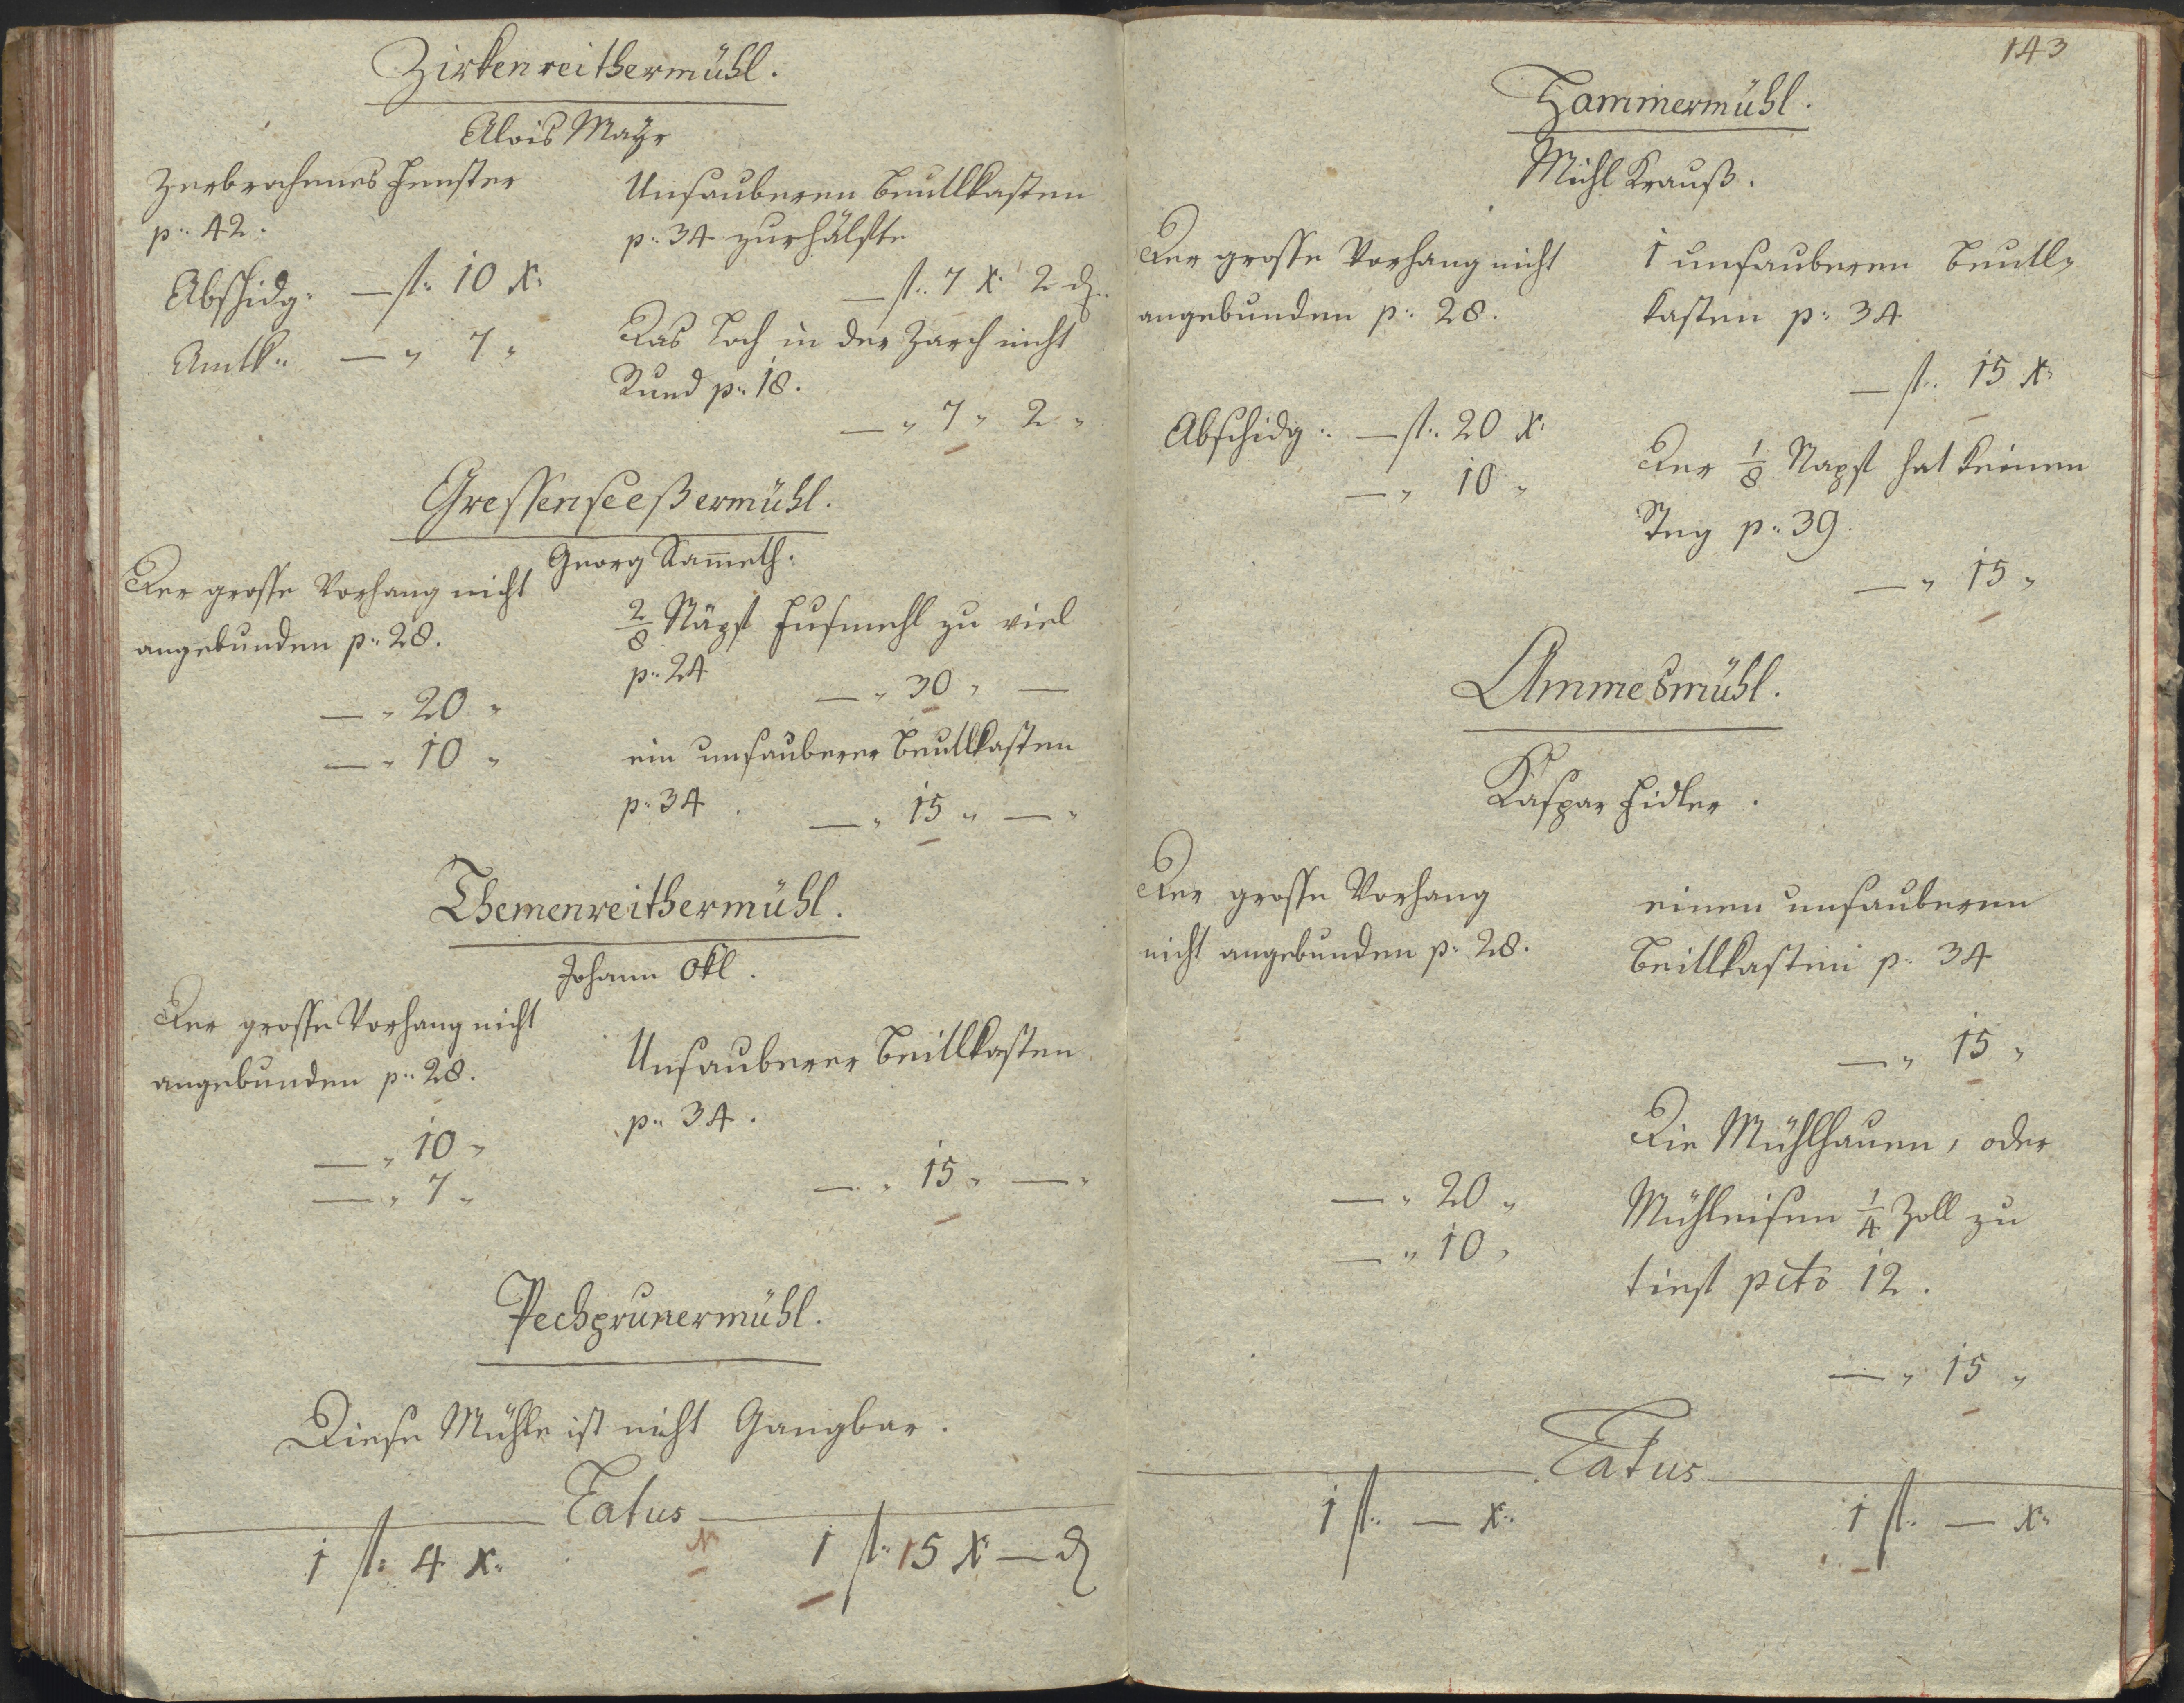 Zirkenreithermühl.
Alois Maÿr
Zerbrochenes Fenster
p: 42.
Abschidg: — fl: 10 x:
Amtk: — " 7 "
Unsauberen Beutlkasten
p: 34 zurhälfte
— fl: 7 x: 2 d:
Das Loch in der Zarch nicht
Rund p: 18.
— " 7 " 2 "
Gressenseeßermühl.
Georg Sam̅eth.
Der grosse Vorhang nicht
angebunden p: 28.
— " 20 "
— " 10 "
2/8 Näpfl Fusmehl zu viel
p: 24
— " 30 " —
ein unsauberer Beutlkasten
p: 34.
— " 15 " — "
Themenreithermühl.
Johann Okl.
Der grosse Vorhang nicht
angebunden p: 28.
— " 10 "
— " 7 "
Unsauberer Beitlkasten
p: 34.
— " 15 " — "
Pechprunermühl.
Diese Mühle ist nicht Gangbar.
Latus
1 fl: 4 x:
1 fl: 15 x — d
143
Hammermühl.
Michl Krauß.
Der grosse Vorhang nicht
angebunden p: 28.
Abschidg: — fl: 20 x:
— " 10 "
1 unsauberen Beutl-
kasten p: 34
— fl: 15 x:
Der 1/8 Napfl hat keinen
Steg p: 39.
— " 15 "
Ammesmühl.
Kaspar Fidler.
Der grosse Vorhang
nicht angebunden p: 28.
— " 20 "
— " 10 "
einen unsauberen
Beitlkasten p: 34
— " 15 "
Die Mühlhauen, oder
Mühleisen 1/4 Zoll zu
tief pcto 12.
— " 15 "
Latus
1 fl: — x:
1 fl: — x: